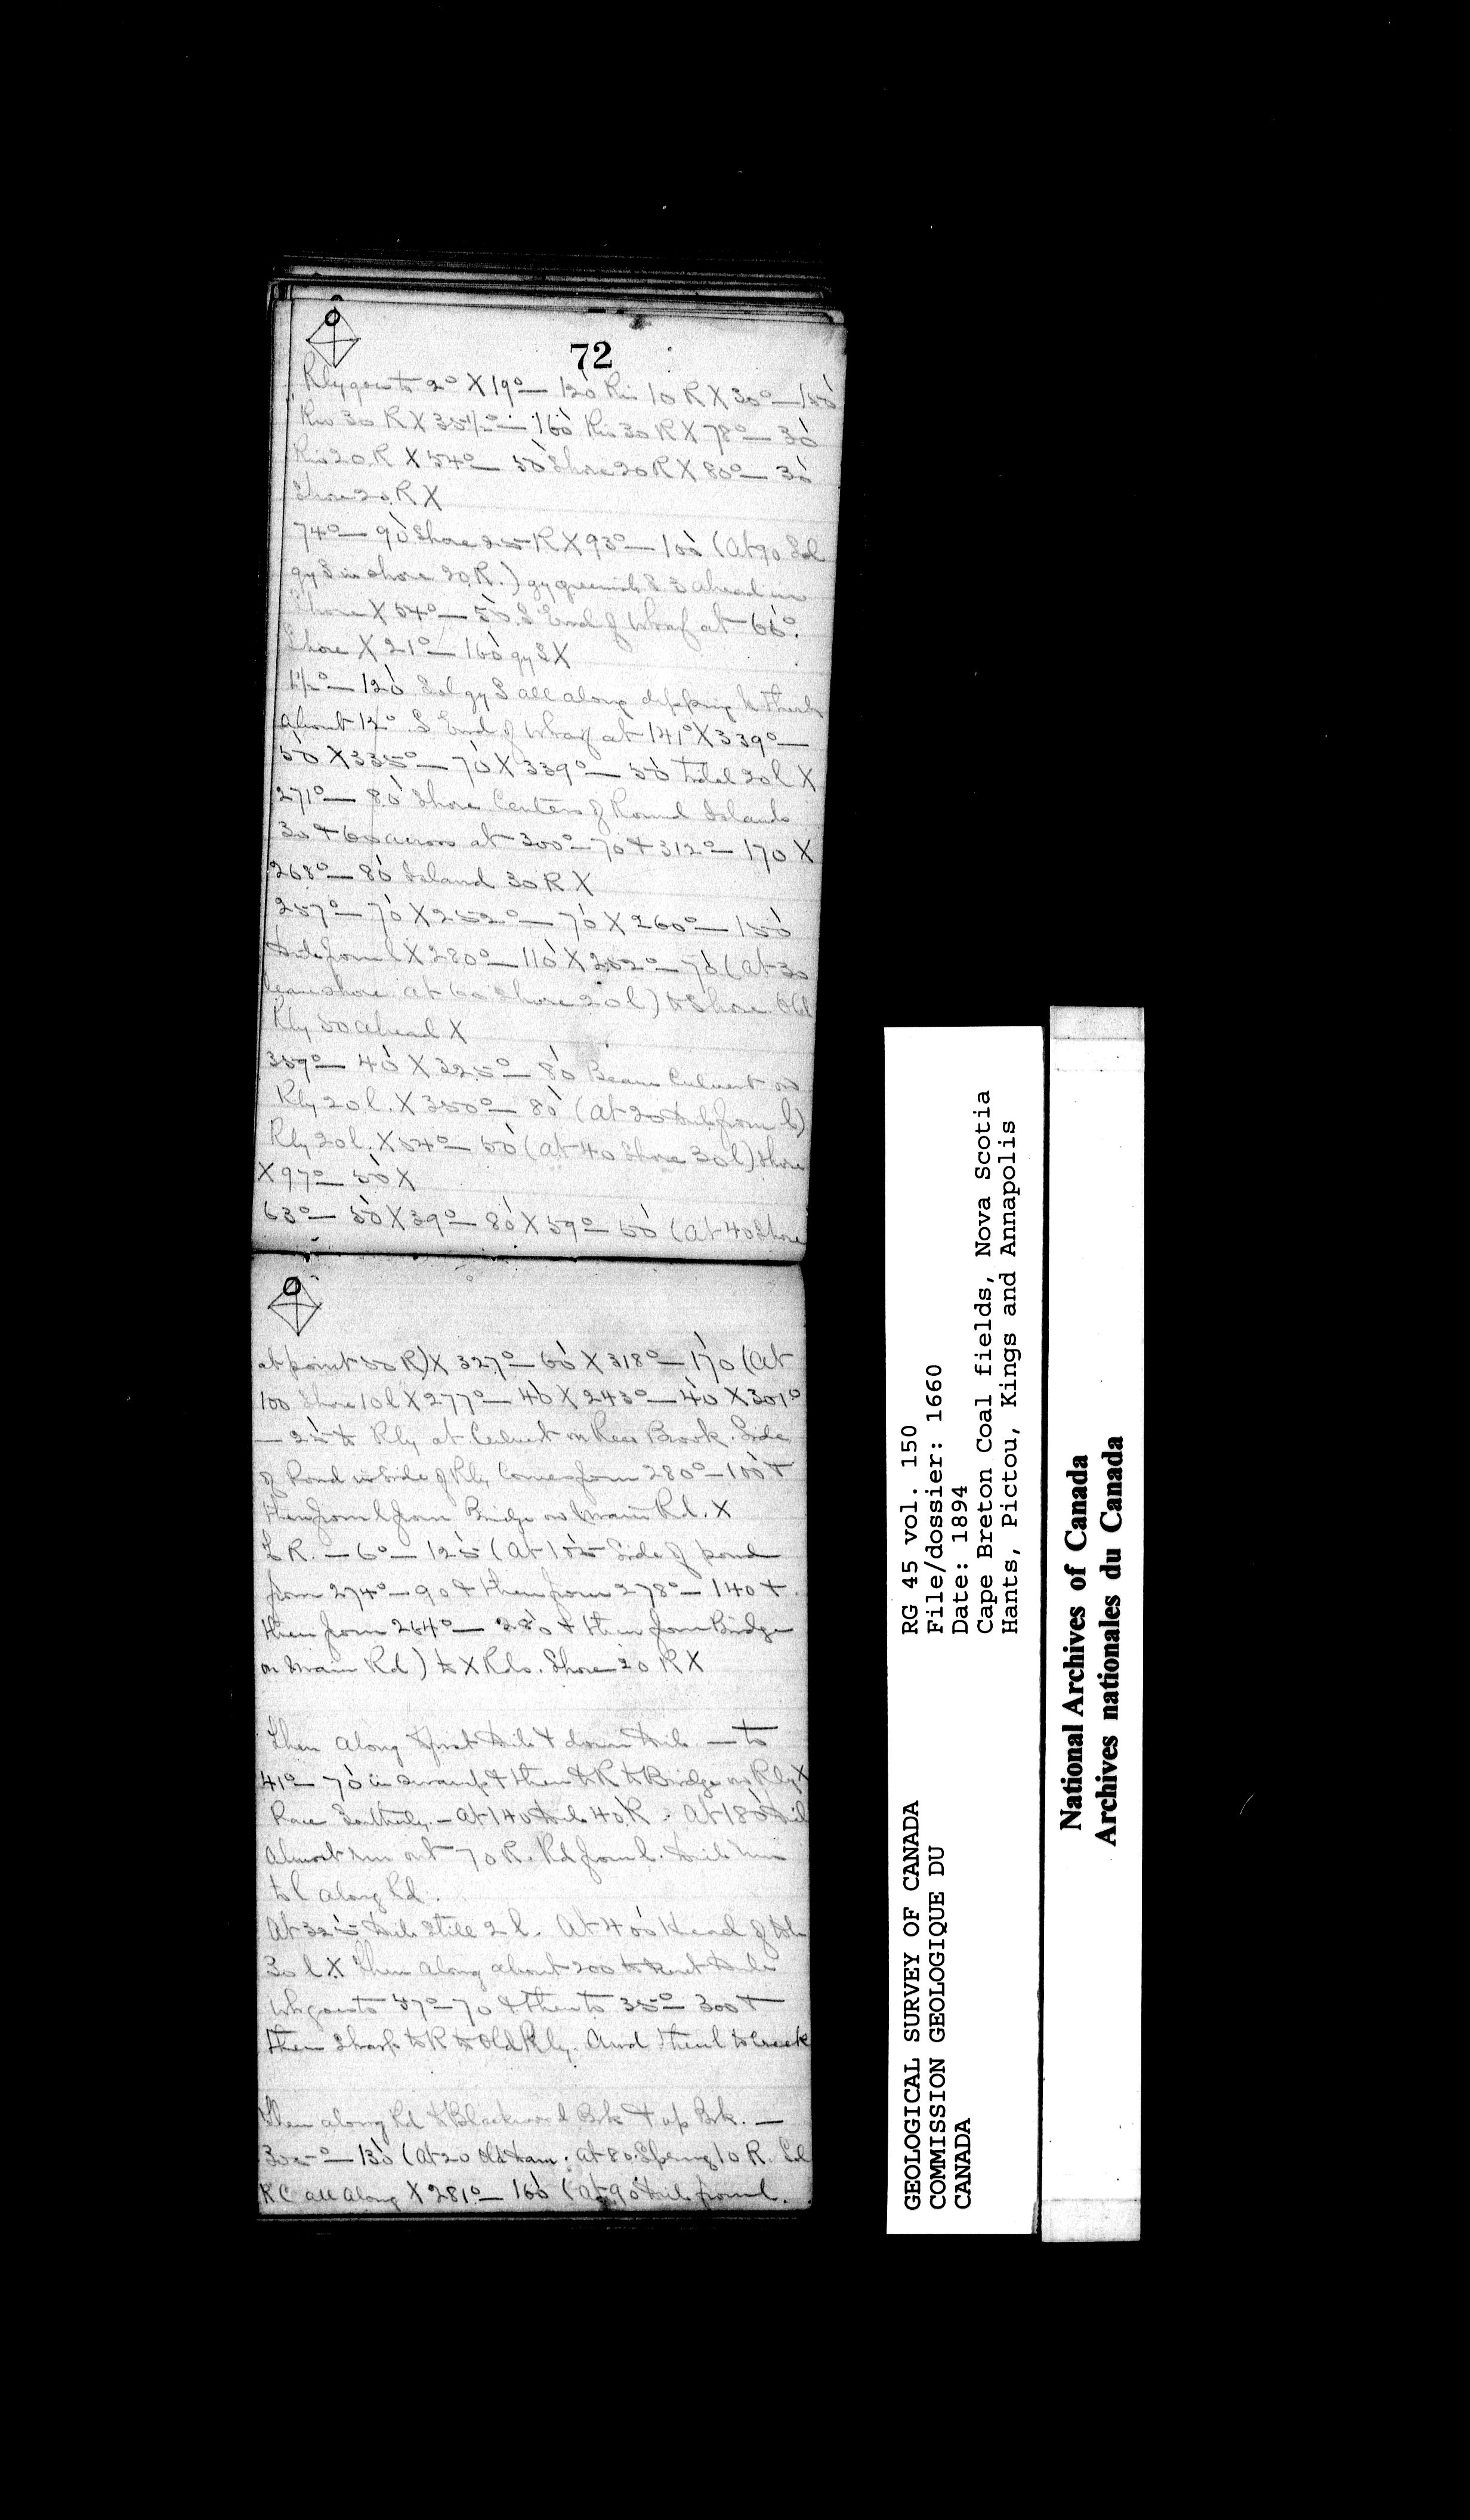 72
Rly goes to 2° X 19° — 120 Riv 10 R X 30° — 150
Riv 30 R X 35½° — 160 Riv 30 R X 78° — 30
Riv 20 R X 54° — 50 Shore 20 R X 80° — 30
Shore 20 R X
74° — 90 Shore 25 R X 93° — 100 (At 90 Sol
gy S in shore 20 R.) gy greenish S 3 ahead in
Shore X 54° — 50. S End of Wharf at 66°.
Shore X 21° — 160 gy S X
1½° — 120 Sol gy S all along dipping
about 12°. S End of Wharf at 141° X 339° —
50 X 335° — 70 X 339° — 50 20 l X
271° — 80 Shore Centers of Round Islands
30 + 60 across at 300° — 70 + 312° — 170 X
268° — 80 Island 30 R X
257° — 70 X 252° — 70 X 260° — 150
from l X 280° — 110 X 252° — 70 (At 30
leave shore. at 60 Shore 20 l) to Shore. Old
Rly 50 ahead X
359° — 40 X 325° — 80 Beam Culvert on
Rly 20 l. X 350° — 80 (At 20 from l)
Rly 20 l. X 54° — 50 (At 40 Shore 30 l) Shore
X 97° — 50 X
63° — 50 X 39° — 80 X 59° — 50 (At 40 Shore
at point 50 R) X 327° — 60 X 318° — 170 (At
100 Shore 10 l X 277° — 40 X 243° — 40 X 301°
— 25 to Rly at Culvert on Brook. Side
of Pond in side of Rly Comes from 280° — 100 +
then from l from Bridge on Main Rd. X
R. — 6° — 125 (At 105 Side of pond
from 274° — 90 + then from 278° — 140 +
then from 264° — 280 + then from Bridge
on Main Rd) to X Rds. Shore 20 R X
Then along first + down — to
41° — 70 in swamp + then to R to Bridge on Rly X
Pace Southerly. — At 140 40 R. At 180
Almost run out 70 R. Rd from l.
to l along Rd.
At 325 still 2 l. At 400 Head of
30 l X Then along about 200 to next
wh goes to 57° — 70 + then to 35° — 300 +
then sharp to R to Old Rly. And then l to creek
Then along Rd to Blackwood Brk + up Brk. —
305° — 130 (At 20 Old dam. At 80 Spring 10 R. Sol
R C all along X 281° — 160 (At 90 from l.
RG 45 vol. 150
File/dossier: 1660
Date: 1894
Cape Breton Coal fields, Nova Scotia
Hants, Pictou, Kings and Annapolis
GEOLOGICAL SURVEY OF CANADA
COMMISSION GEOLOGIQUE DU
CANADA
National Archives of Canada
Archives nationales du Canada